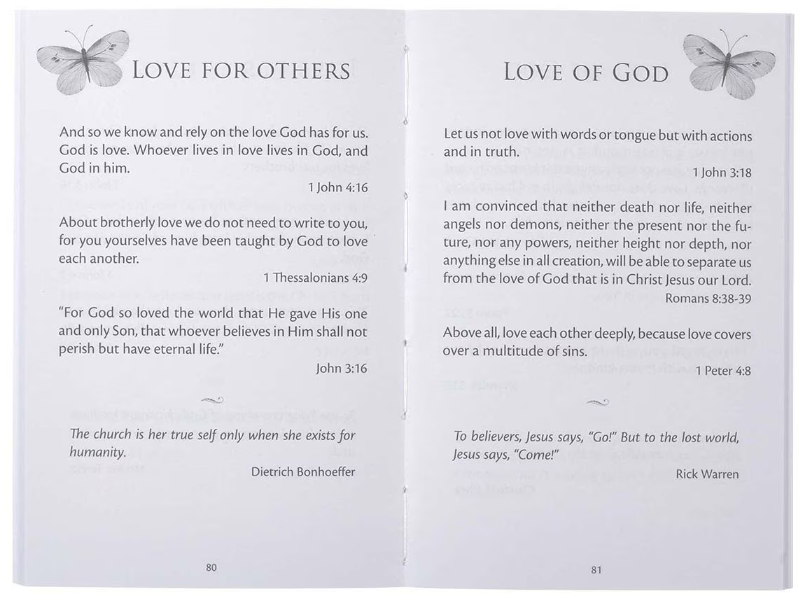 LOVE FOR OTHERS
And so we know and rely on the love God has for us.
God is love. Whoever lives in love lives in God, and
God in him.
1 John 4:16
About brotherly love we do not need to write to you,
for you yourselves have been taught by God to love
each another.
1 Thessalonians 4:9
“For God so loved the world that He gave His one
and only Son, that whoever believes in Him shall not
perish but have eternal life.”
John 3:16
The church is her true self only when she exists for
humanity.
Dietrich Bonhoeffer
80
LOVE OF GOD
Let us not love with words or tongue but with actions
and in truth.
1 John 3:18
I am convinced that neither death nor life, neither
angels nor demons, neither the present nor the fu-
ture, nor any powers, neither height nor depth, nor
anything else in all creation, will be able to separate us
from the love of God that is in Christ Jesus our Lord.
Romans 8:38-39
Above all, love each other deeply, because love covers
over a multitude of sins.
1 Peter 4:8
To believers, Jesus says, “Go!” But to the lost world,
Jesus says, “Come!”
Rick Warren
81